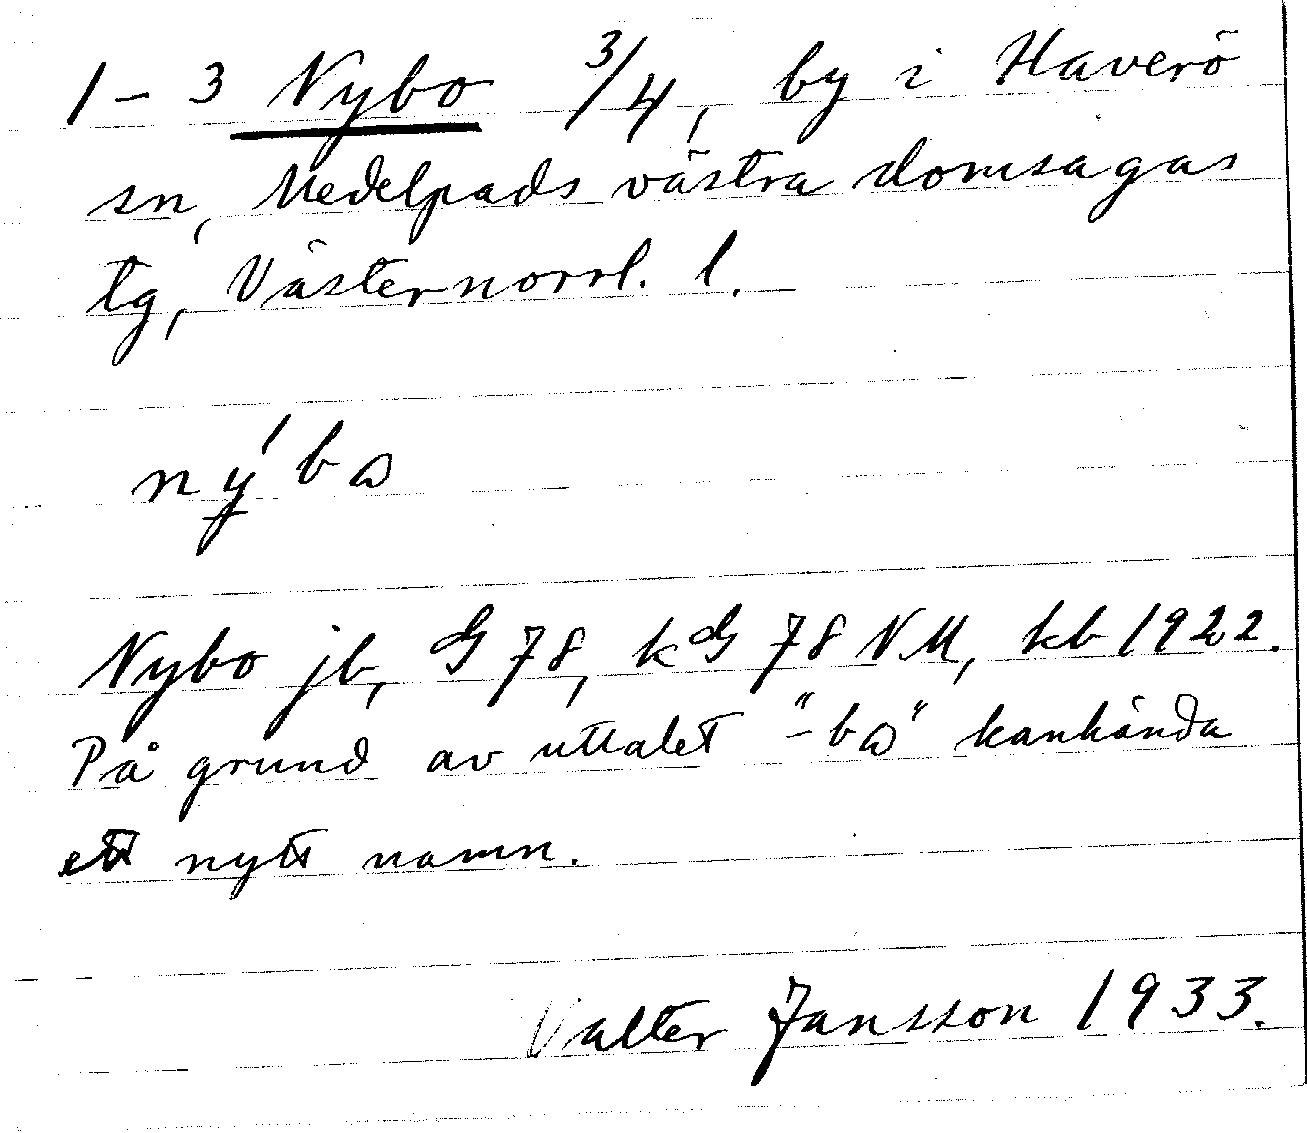 1-3 Nybo 3/4, by i Haverö
sn, Medelpads västra domsagas
tg, Västernorrl. l.
nýbɷ
Nybo jb, G 78, kG 78 NM, kb 1922.
På grund av uttalet "-bɷ" kanhända
ett nytt namn.
Valter Jansson 1933.